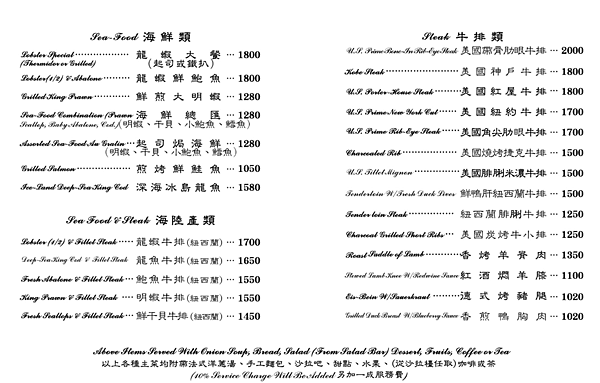 Sea-Food 海鮮類
Lobster Special ················ 龍蝦大餐 ··· 1800
(Thermidor or Grilled) (起司或鐵扒)
Lobster(1/2) & Abalone ········ 龍蝦鮮鮑魚 ··· 1800
Grilled King Prawn ············ 鮮煎大明蝦 ··· 1280
Sea-Food Combination (Prawn 海鮮總匯 ··· 1280
Scallop, Baby Abalone, Cod.)(明蝦、干貝、小鮑魚、鱈魚)
Assorted Sea-Food Au Gratin ···· 起司焗海鮮 ··· 1280
(明蝦、干貝、小鮑魚、鱈魚)
Grilled Salmon ················ 煎烤鮮鮭魚 ··· 1050
Ice-Land Deep-Sea King Cod 深海冰島龍魚 ··· 1580
Sea Food & Steak 海陸產類
Lobster (1/2) & Fillet Steak ···· 龍蝦牛排(紐西蘭) ··· 1700
Deep-Sea King Cod & Fillet Steak ··· 龍魚牛排(紐西蘭) ··· 1650
Fresh Abalone & Fillet Steak ···· 鮑魚牛排(紐西蘭) ··· 1550
King Prawn & Fillet Steak ······ 明蝦牛排(紐西蘭) ··· 1550
Fresh Scallops & Fillet Steak ···· 鮮干貝牛排(紐西蘭) ··· 1450
Steak 牛排類
U.S. Prime Bone-In Rib-Eye Steak 美國帶骨肋眼牛排 ··· 2000
Kobe Steak ················ 美國神戶牛排 ··· 1800
U.S. Porter-House Steak ······ 美國紅屋牛排 ··· 1800
U.S. Prime New York Cut ······ 美國紐約牛排 ··· 1700
U.S. Prime Rib-Eye Steak ······ 美國角尖肋眼牛排 ··· 1700
Charcoaled Rib ············ 美國燒烤捷克牛排 ··· 1500
U.S. Fillet Mignon ·········· 美國腓脷米濃牛排 ··· 1500
Tenderloin W/Fresh Duck Liver 鮮鴨肝紐西蘭牛排 ··· 1500
Tender loin Steak ·········· 紐西蘭腓脷牛排 ··· 1250
Charcoat Grilled Short Ribs ··· 美國炭烤牛小排 ··· 1250
Roast Saddle of Lamb ········ 香烤羊脊肉 ··· 1350
Stewed Lamb Knee W/Redwine Sauce 紅酒燜羊膝 ··· 1100
Eis-Bein W/Sauerkraut ········ 德式烤豬腿 ··· 1020
Grilled Duck Breast W/Blueberry Sauce 香煎鴨胸肉 ··· 1020
Above Items Served With Onion Soup, Bread, Salad (From Salad Bar) Dessert, Fruits, Coffee or Tea
以上各種主菜均附帶法式洋蔥湯、手工麵包、沙拉吧、甜點、水果、(從沙拉檯任取)咖啡或茶
(10% Service Charge Will Be Added 另加一成服務費)